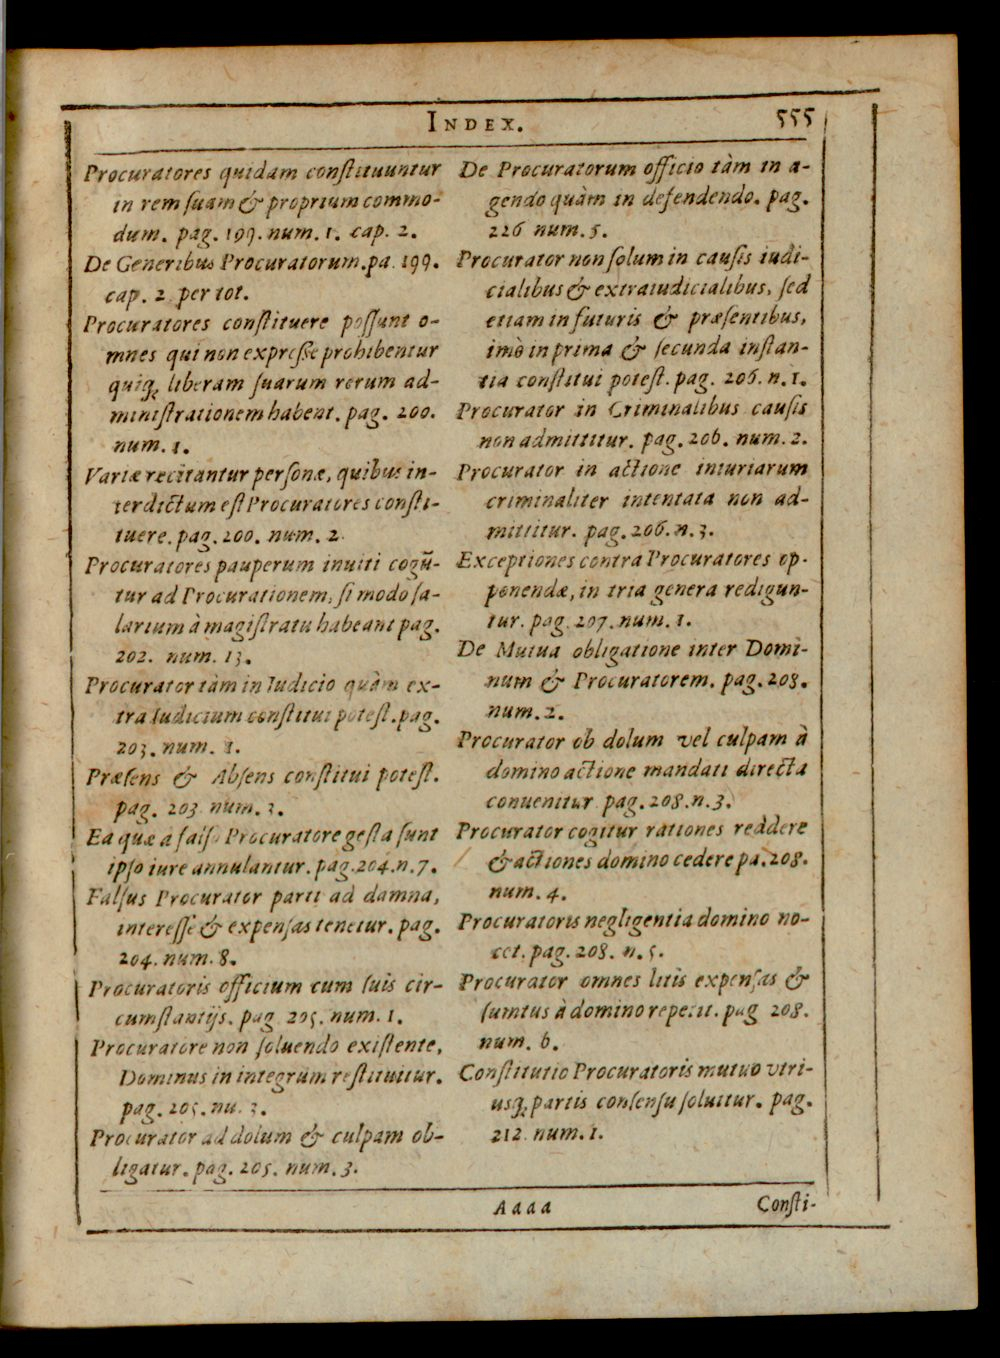 INDEX. 555
Procuratores quidam conſtituuntur
in rem ſuam & proprium commo-
dum. pag. 199. num. 1. cap. 2.
De Generibus Procuratorum. pa. 199.
cap. 2 per tot.
Procuratores conſtituere poſſunt o-
mnes qui non expreſſe prohibentur
quiq́; liberam ſuarum rerum ad-
miniſtrationem habent. pag. 200.
num. 1.
Variæ recitantur perſonæ, quibus in-
terdictum eſt Procuratores conſti-
tuere. pag. 200. num. 2.
Procuratores pauperum inuiti cogũ-
tur ad Procurationem, ſi modo ſa-
larium à magiſtratu habeant pag.
202. num. 13.
Procurator tàm in Iudicio quàm ex-
tra Iudicium conſtitui poteſt. pag.
203. num. 1.
Præſens & Abſens conſtitui poteſt.
pag. 203 num. 3.
Ea quæ a falſo Procuratore geſta ſunt
ipſo iure annulantur. pag. 204. n. 7.
Falſus Procurator parti ad damna,
intereſſe & expenſas tenetur. pag.
204. num. 8.
Procuratoris officium cum ſuis cir-
cumſtantijs. pag 205. num. 1.
Procuratore non ſoluendo exiſtente,
Dominus in integrum reſtituitur.
pag. 205. nu. 3.
Procurator ad dolum & culpam ob-
ligatur. pag. 205. num. 3.
De Procuratorum officio tàm in a-
gendo quàm in defendendo. pag.
226 num. 5.
Procurator non ſolum in cauſis iudi-
cialibus & extraiudicialibus, ſed
etiam in futuris & præſentibus,
imò in prima & ſecunda inſtan-
tia conſtitui poteſt. pag. 206. n. 1.
Procurator in Criminalibus cauſis
non admittitur. pag. 206. num. 2.
Procurator in actione iniuriarum
criminaliter intentata non ad-
mittitur. pag. 206. n. 3.
Exceptiones contra Procuratores op-
ponendæ, in tria genera redigun-
tur. pag. 207. num. 1.
De Mutua obligatione inter Domi-
num & Procuratorem. pag. 208.
num. 2.
Procurator ob dolum vel culpam à
domino actione mandati directa
conuenitur pag. 208. n. 3.
Procurator cogitur rationes reddere
& actiones domino cedere pa. 208.
num. 4.
Procuratoris negligentia domino no-
cet. pag. 208. n. 5.
Procurator omnes litis expenſas &
ſumtus à domino repetit. pag 208.
num. 6.
Conſtitutio Procuratoris mutuo vtri-
usq́; partis conſenſu ſoluitur. pag.
212 num. 1.
Aaaa Conſti-